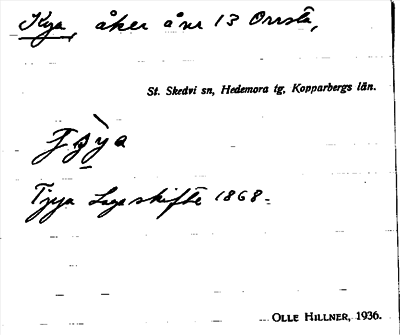 Kya, åker å nr 13 Orrsta,
St. Skedvi sn, Hedemora tg, Kopparbergs län.
Tjya Lagaskifte 1868.
OLLE HILLNER, 1936.